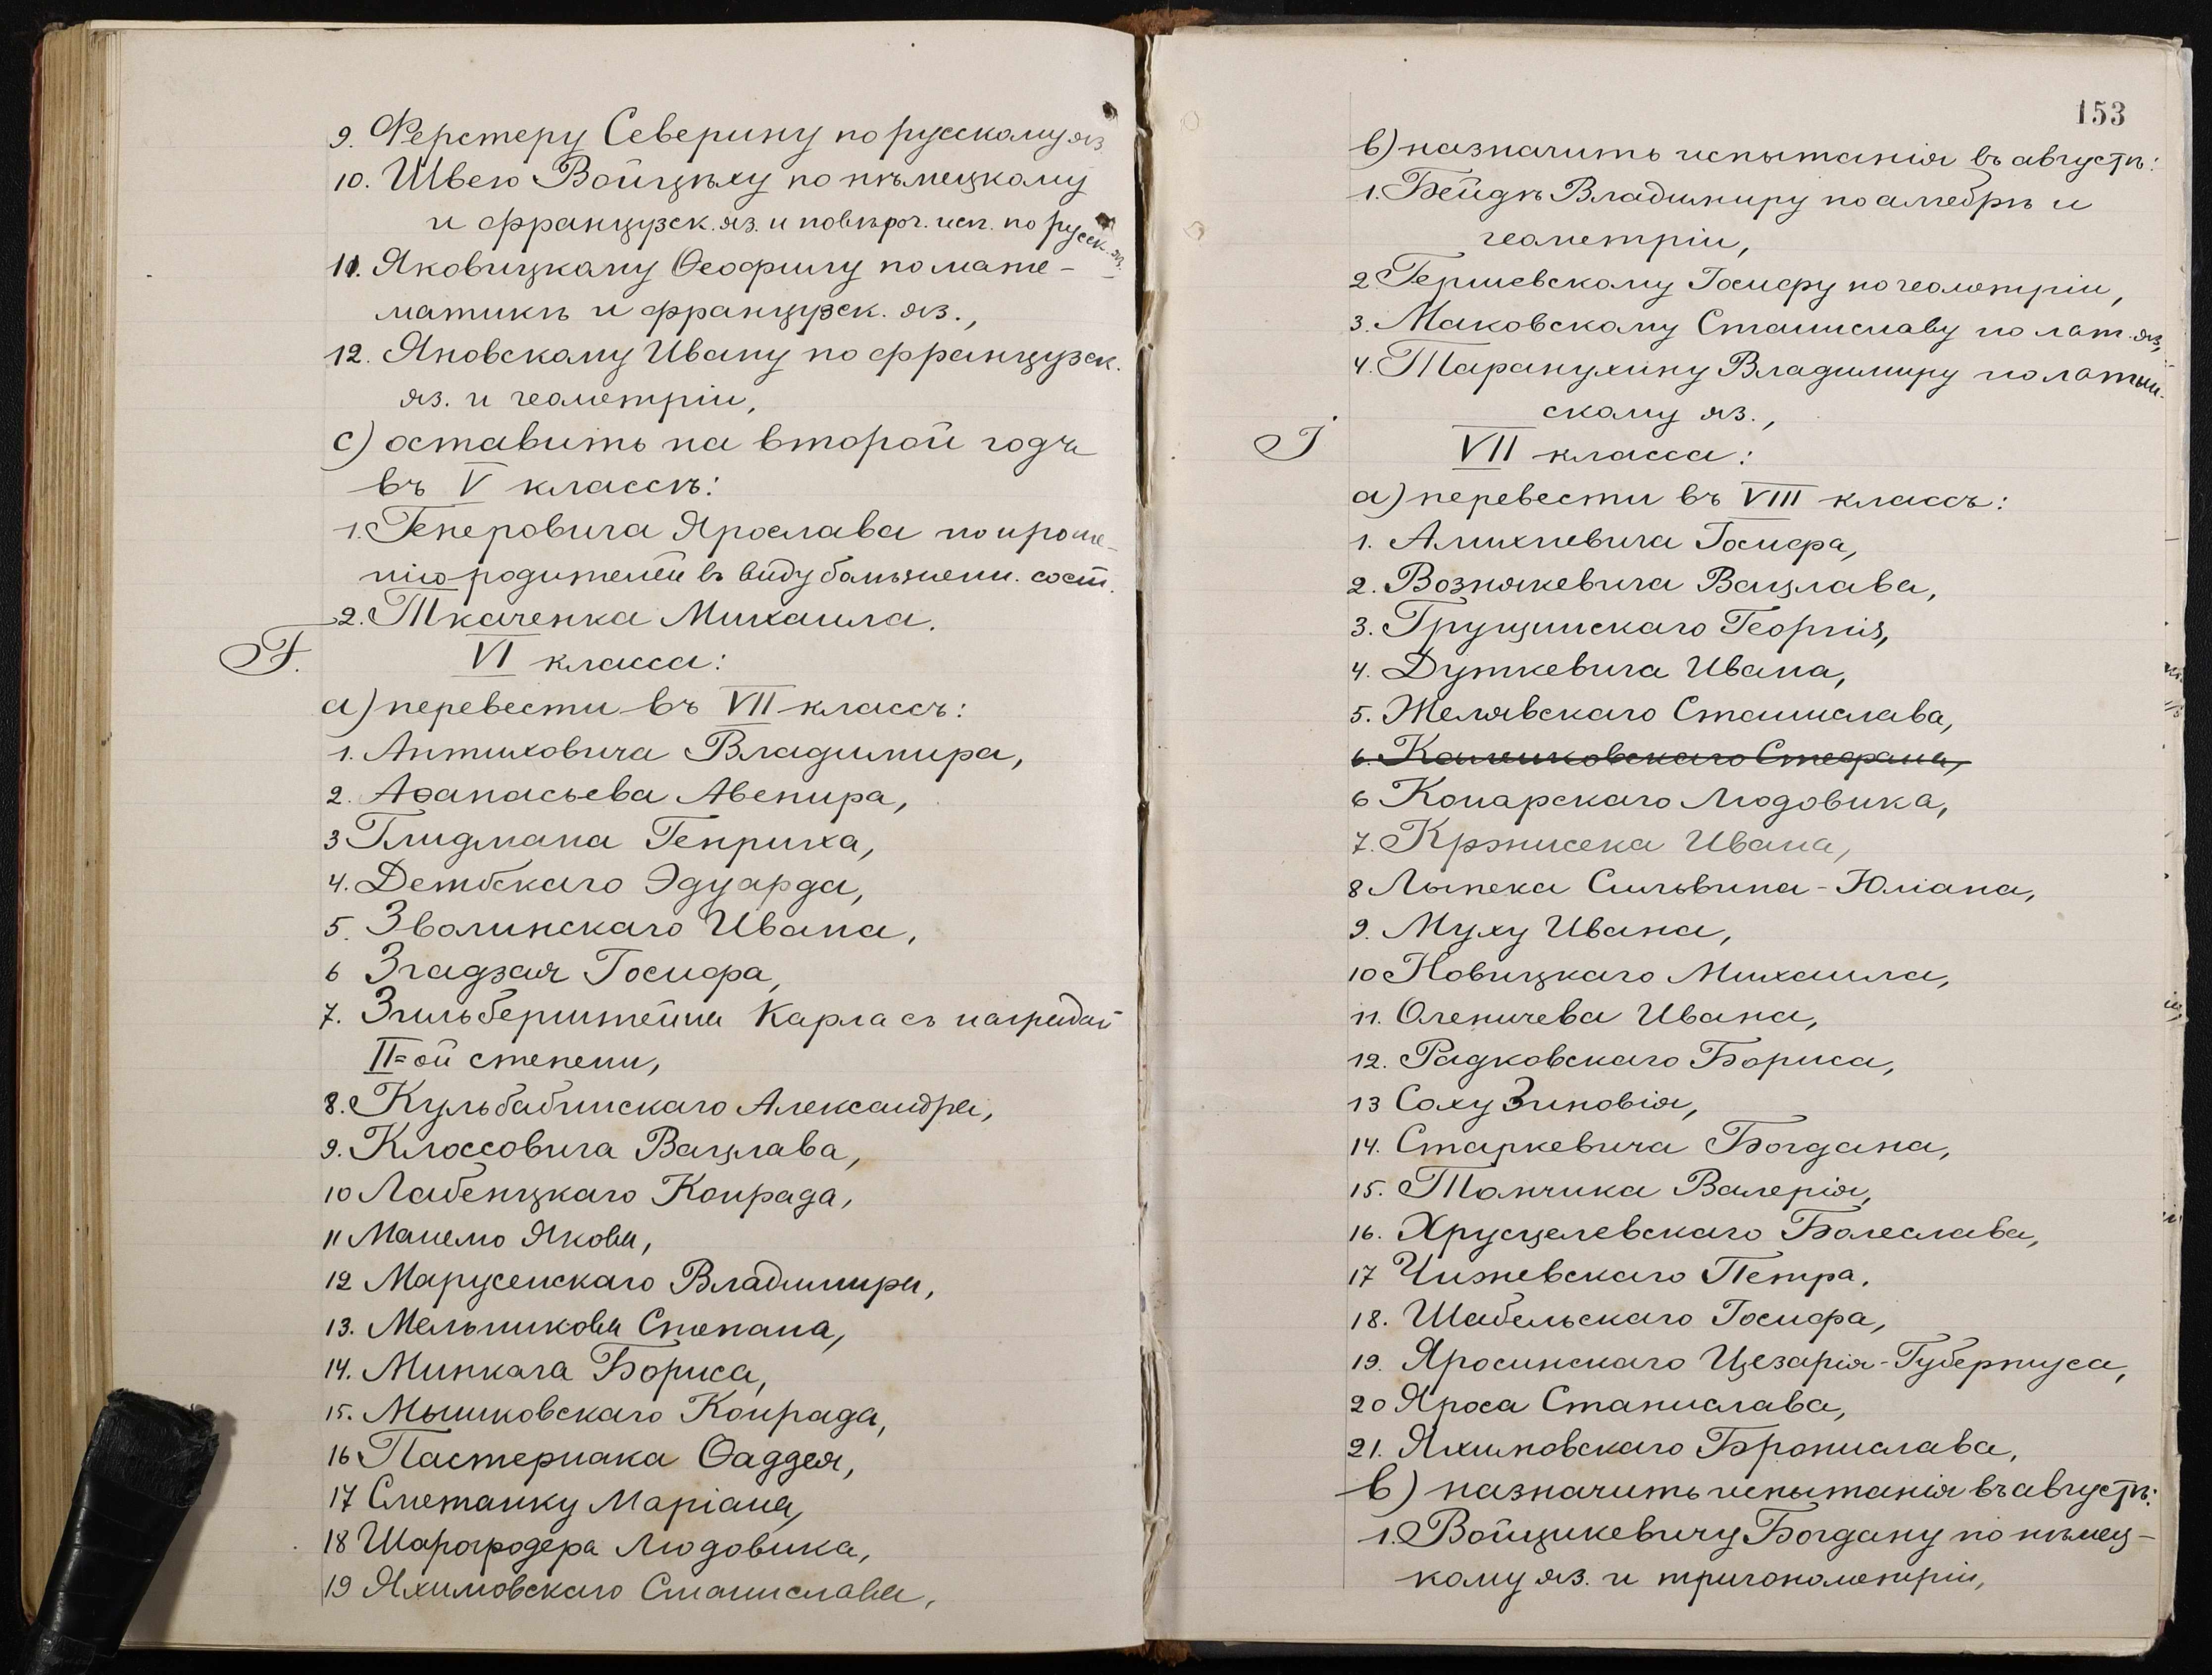 9. Ферстеру Северину по русскому яз.
10. Швею Войцѣху по нѣмецкому
и французск. яз. и повѣроч. исп. по русск. яз.
11. Яковицкому Ѳеофилу по мате-
матикѣ и французск. яз.,
12. Яновскому Ивану по французск.
яз. и геометріи,
с) оставить на второй годъ
въ V классѣ:
1. Генеровича Ярослава по проше-
нію родителей въ виду болѣзненн. сост.
2. Ткаченка Михаила.
F. VI класса:
а) перевести въ VII классъ:
1. Антиховича Владимира,
2. Аѳанасьева Авенира,
3 Глидмана Генриха,
4. Дембскаго Эдуарда,
5. Зволинскаго Ивана,
6 Згадзая Іосифа,
7. Зильберштейна Карла съ наградой
II=ой степени,
8. Кульбабинскаго Александра,
9. Клоссовича Вацлава,
10 Лабенцкаго Конрада,
11 Манело Якова,
12 Марусенскаго Владимира,
13. Мельникова Степана,
14. Минкага Бориса,
15. Мышковскаго Конрада,
16 Пастернака Ѳаддея,
17 Сметанку Маріана,
18 Шарогродера Людовика,
19 Яхимовскаго Станислава,
153
в) назначить испытанія въ августѣ:
1. Бейдѣ Владимиру по алгебрѣ и
геометріи,
2 Гершевскому Іосифу по геометріи,
3. Маковскому Станиславу по лат. яз,
4. Таранухину Владимиру по латин-
скому яз.,
J VII класса:
а) перевести въ VIII классъ:
1. Алихневича Іосифа,
2. Вознякевича Вацлава,
3. Грущинскаго Георгія,
4. Дуткевича Ивана,
5. Желявскаго Станислава,
6. Калишковскаго Стефана,
6 Конарскаго Людовика,
7. Кржисека Ивана,
8 Лыпека Сильвина-Юліана,
9. Муху Ивана,
10 Новицкаго Михаила,
11. Оленичева Ивана,
12. Радковскаго Бориса,
13 Соху Зиновія,
14. Старкевича Богдана,
15. Томчика Валерія,
16. Хрусцелевскаго Болеслава,
17 Чижевскаго Петра.
18. Шабельскаго Іосифа,
19. Яросинскаго Цезарія-Губертуса,
20 Яроса Станислава,
21. Яхимовскаго Бронислава,
в) назначить испытанія въ августѣ:
1. Войцикевичу Богдану по нѣмец-
кому яз. и тригонометріи,